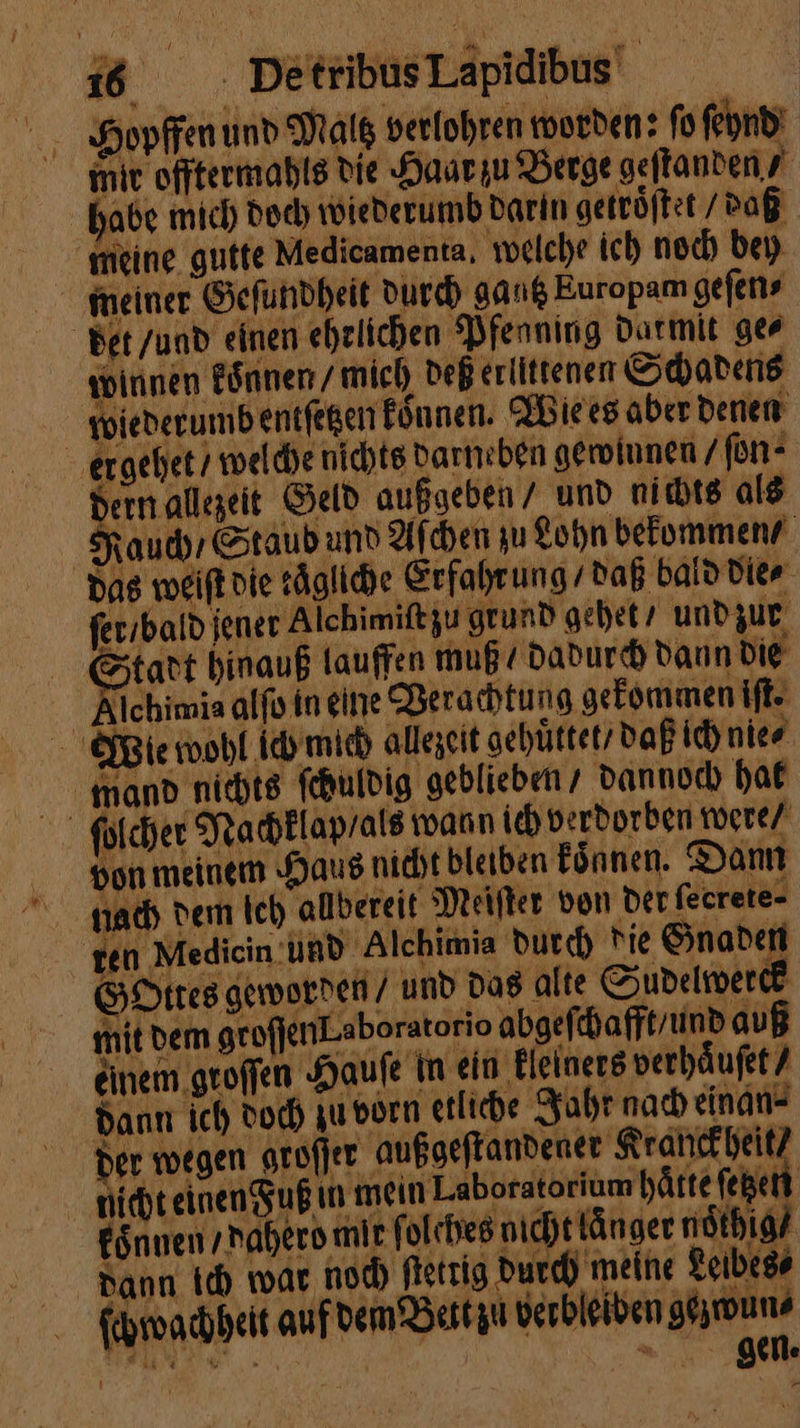 16 De tribus Lapidibus
Hopffen und Maltz verlohren worden: ſo ſeynd
mir offtermahls die Haar zu Berge geſtanden /
habe mich doch wiederumb darin getroͤſtet / daß
meine gutte Medicamenta, welche ich noch bey
meiner Geſundheit durch gantz Europam geſen⸗
det / und einen ehrlichen Pfenning darmit ge⸗
winnen koͤnnen / mich deß erlittenen Schadens
wiederumb entſetzen koͤnnen. Wie es aber denen
ergehet / welche nichts darneben gewinnen / ſon-
dern allezeit Geld außgeben / und nichts als
Rauch / Staub und Aſchen zu Lohn bekommen /
das weiſt die taͤgliche Erfahrung / daß bald die⸗
ſer / bald jener Alchimiſt zu grund gehet / und zur
Stadt hinauß lauffen muß / dadurch dann die
Alchimia alſo in eine Verachtung gekommen iſt.
Wie wohl ich mich allezeit gehuͤttet / daß ich nie⸗
mand nichts ſchuldig geblieben / dannoch hat
ſolcher Nachklap / als wann ich verdorben were /
von meinem Haus nicht bleiben koͤnnen. Dann
nach dem ich allbereit Meiſter von der ſecrete-
ren Medicin und Alchimia durch die Gnaden
GOttes geworden / und das alte Sudelwerck
mit dem groſſen Laboratorio abgeſchafft / und auß
einem groſſen Hauſe in ein kleiners verhaͤuſet /
dann ich doch zu vorn etliche Jahr nach einan-
der wegen groſſer außgeſtandener Kranckheit /
nicht einen Fuß in mein Laboratorium haͤtte ſetzen
koͤnnen / dahero mir ſolches nicht laͤnger noͤthig /
dann ich war noch ſtettig durch meine Leibes⸗
ſchwachheit auf dem Bett zu verbleiben gezwun⸗
gen.